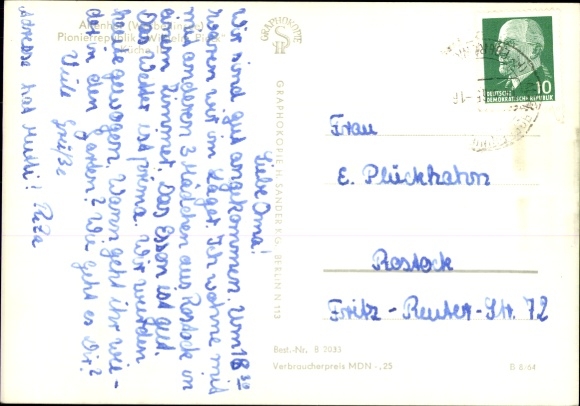 Altenhof (Werbellinsee)
Pionierrepublik "Wilhelm Pieck"
Küche II
Liebe Oma!
Wir sind gut angekommen. Um 18³⁰
waren wir im Lager. Ich wohne mit
mit anderen 3 Mädchen aus Rostock in
einem Zimmer. Das Essen ist gut.
Das Wetter ist prima. Wir wurden
heute gewogen. Wann geht ihr wie-
der in den Garten? Wie geht es Dir?
Viele Grüße
Rita
Adresse hat Mutti!
GRAPHOKOPIE
GRAPHOKOPIE H. SANDER KG. BERLIN N 113
DEUTSCHE
DEMOKRATISCHE REPUBLIK
10
Frau
E. Plückhahn
Rostock
Fritz-Reuter-Str. 72
Best.-Nr. B 2033
Verbraucherpreis MDN -,25
G 8/64